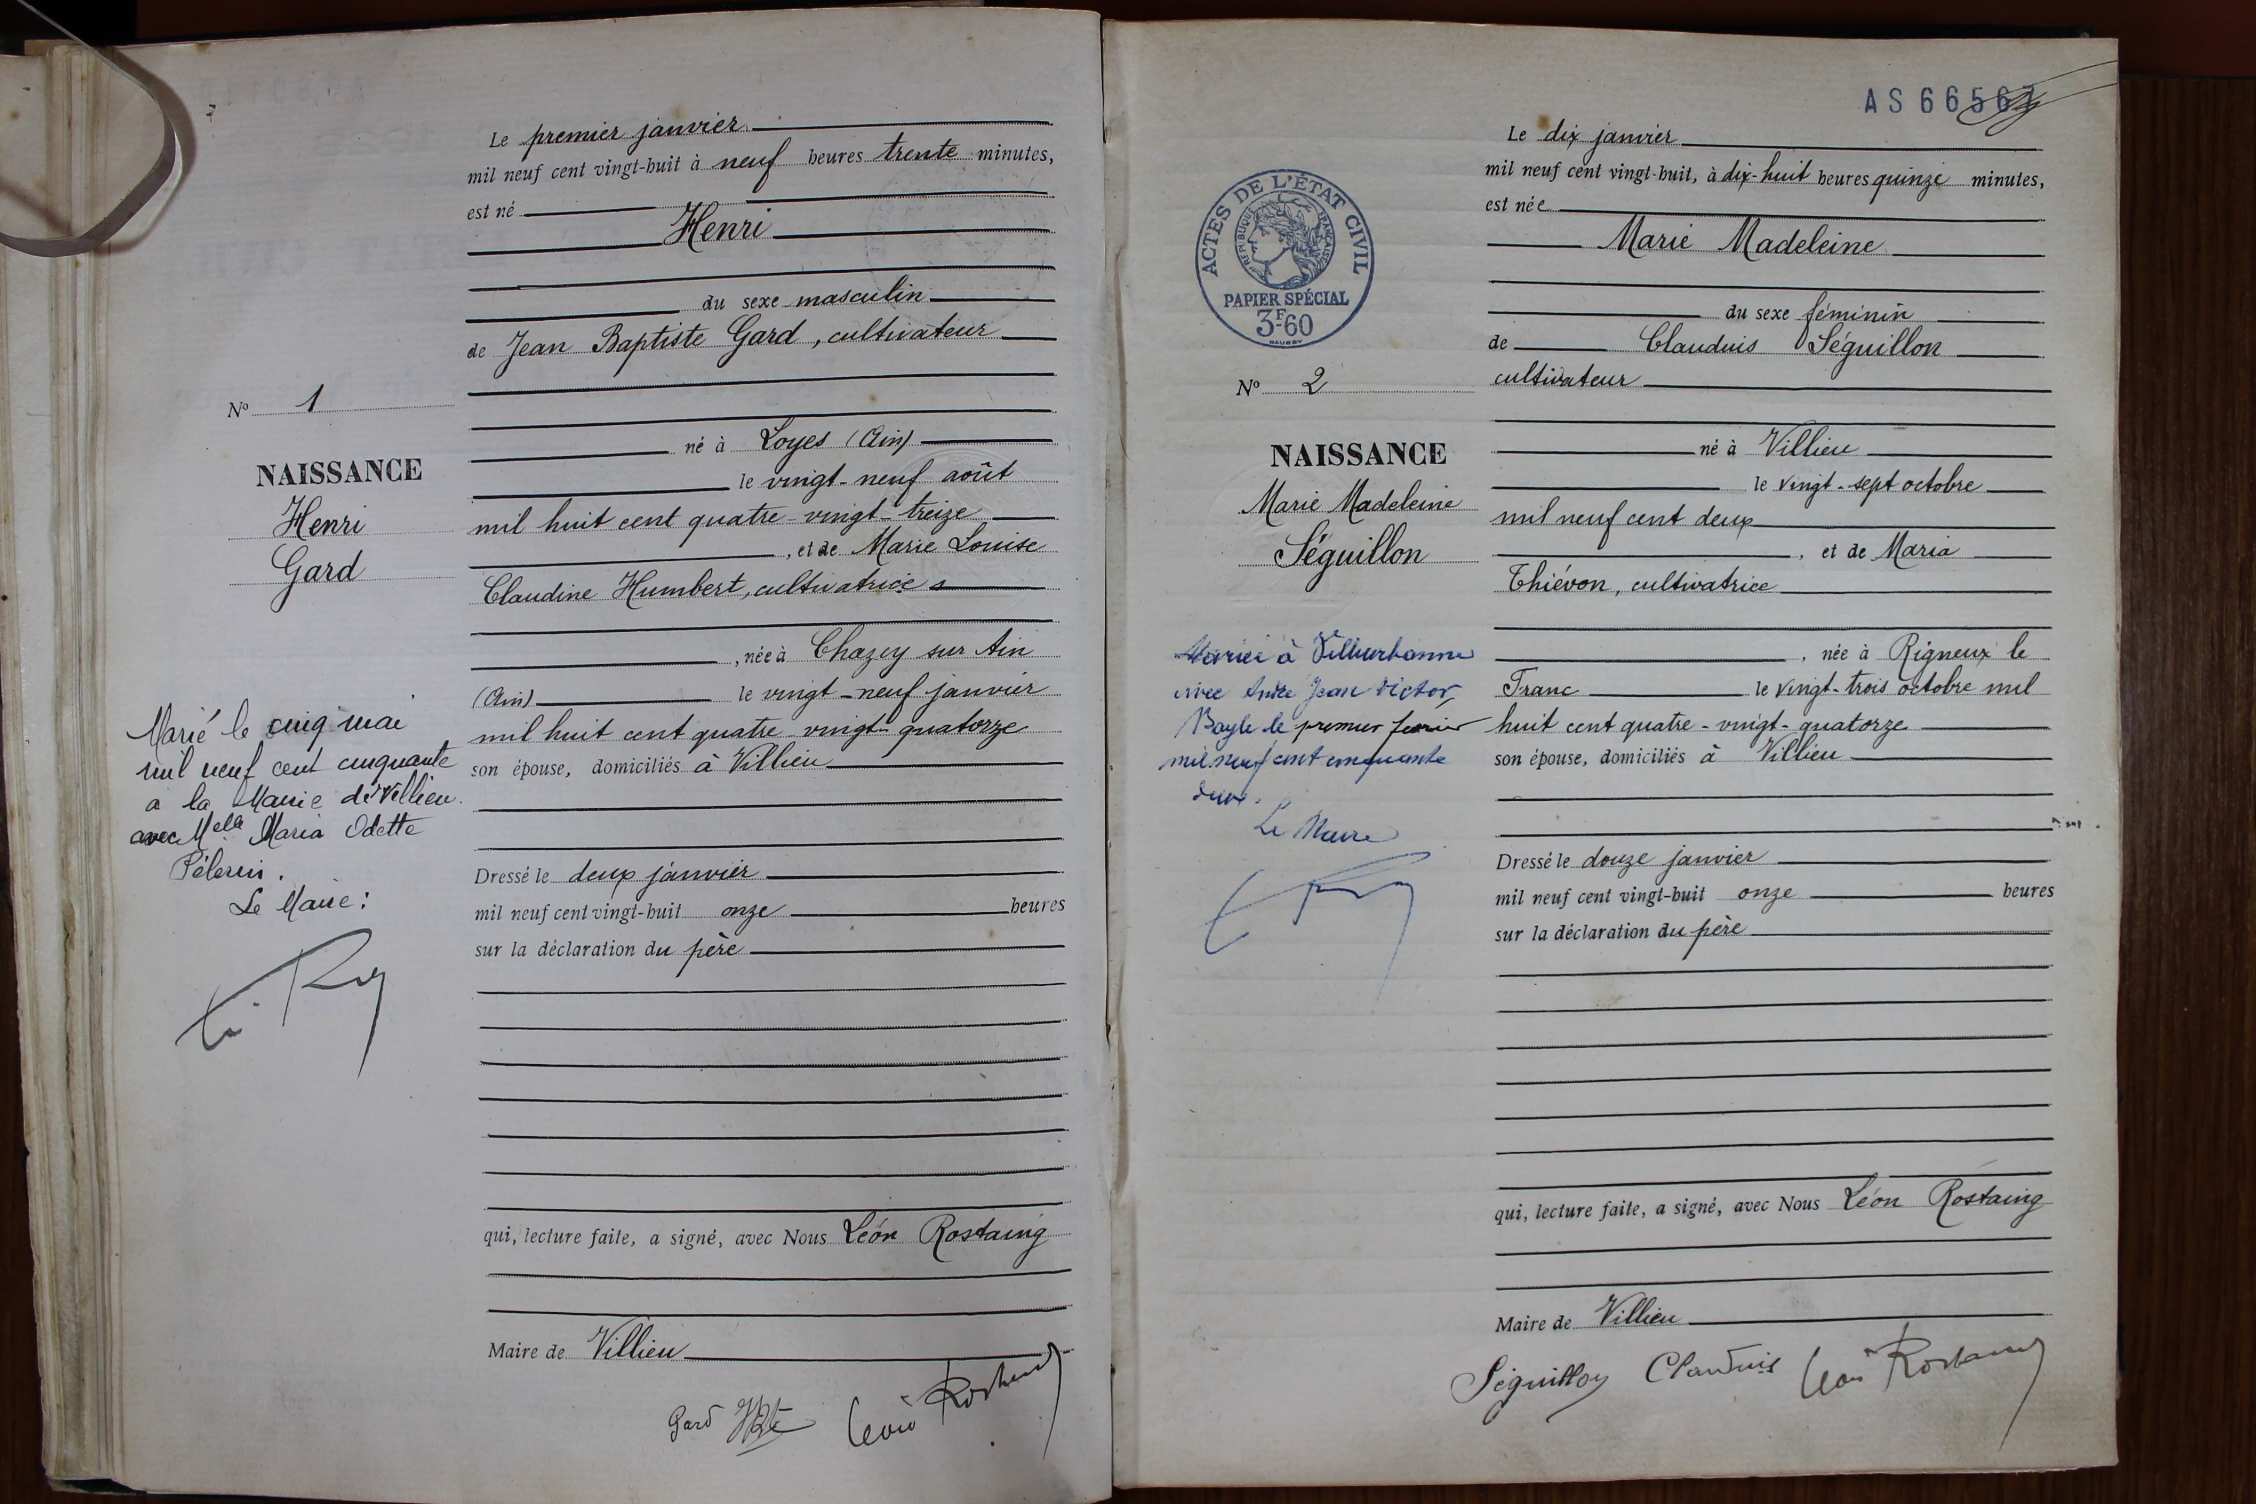 Le premier janvier
mil neuf cent vingt-huit à neuf heures trente minutes,
est né
Henri
du sexe masculin
de Jean Baptiste Gard, cultivateur
né à Loyes (Ain)
le vingt-neuf août
mil huit cent quatre-vingt-treize
, et de Marie Louise
Claudine Humbert, cultivatrice
, née à Chazey sur Ain
(Ain) le vingt-neuf janvier
mil huit cent quatre vingt-quatorze
son épouse, domiciliés à Villieu
Dressé le deux janvier
mil neuf cent vingt-huit onze heures
sur la déclaration du père
qui, lecture faite, a signé, avec Nous Léon Rostaing
Maire de Villieu
Gard
Léon Rostaing
No 1
NAISSANCE
Henri
Gard
Marié le cinq mai
mil neuf cent cinquante
à la Mairie de Villieu
avec Melle Maria Odette
Pélerin.
Le Maire:
AS 66567
Le dix janvier
mil neuf cent vingt-huit, à dix-huit heures quinze minutes,
est née
Marie Madeleine
du sexe féminin
de Claudius Séguillon
cultivateur
né à Villieu
le vingt-sept octobre
mil neuf cent deux
, et de Maria
Thiévon, cultivatrice
, née à Rigneux le
Franc le vingt-trois octobre mil
huit cent quatre-vingt-quatorze
son épouse, domiciliés à Villieu
Dressé le douze janvier
mil neuf cent vingt-huit onze heures
sur la déclaration du père
qui, lecture faite, a signé, avec Nous Léon Rostaing
Maire de Villieu
Séguillon Claudius Léon Rostaing
ACTES DE L'ÉTAT CIVIL
RÉPUBLIQUE FRANÇAISE
PAPIER SPÉCIAL
3F60
No 2
NAISSANCE
Marie Madeleine
Séguillon
Mariée à Villeurbanne
avec André Jean Victor
Bayle le premier février
mil neuf cent cinquante
deux.
Le Maire